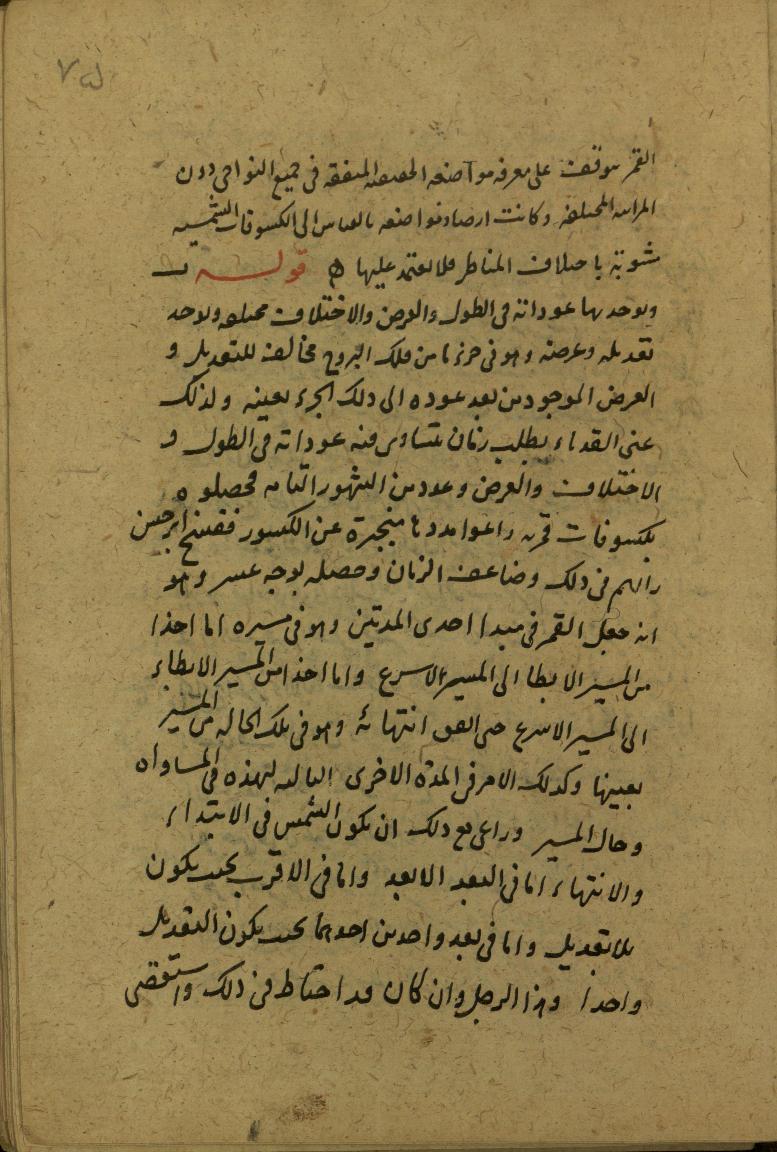 القمر موقف على معرفة مواضعه الحقيقية المتفقة في جميع النواحي دون
المراىىه المختلفة وكانت ارصاد مواضعه بالقياس الى الكسوفات الشمسيه
مشوبة باختلاف المناظر فلا يعتمد عليها ه قولـــه
ويوجد بها عوداته في الطول والعرض والاختلاف مختلفه ويوجد
تعديله وعرضه وهو في جزء ما من فلك البروج مخالفه للتعديل و
العرض الموجودين بعد عوده الى ذلك الجزء بعينه ولذلك
عنى القدماء بطلب زمان تتساوى فيه عوداته في الطول و
الاختلاف والعرض وعدد من الشهور التامه فحصلوه
بكسوفات قمريه راعوا مددها منجبرة عن الكسور ففسخ ابرخس
رايهم في ذلك وضاعف الزمان وحصله بوجه عسر وهو
انه جعل القمر في مبدا احدى المدتين وهو في مسيره اما اخذا
من المسير الابطا الى المسير الاسرع واما اخذا من المسير الابطاء
الى المسير الاسرع حتى اتفق انتهائه وهو في تلك الحاله من المسير
بعينها وكذلك الامر في المدة الاخرى التاليه لهذه في المساواه
وحال المسير وراعى مع ذلك ان يكون الشمس في الابتداء
والانتهاء اما في البعد الابعد واما في الاقرب بحيث يكون
بلا تعديل واما في بعد واحد من احدهما بحيث يكون التعديل
واحدا وهذا الرجل وان كان قد احتاط في ذلك واستقصى